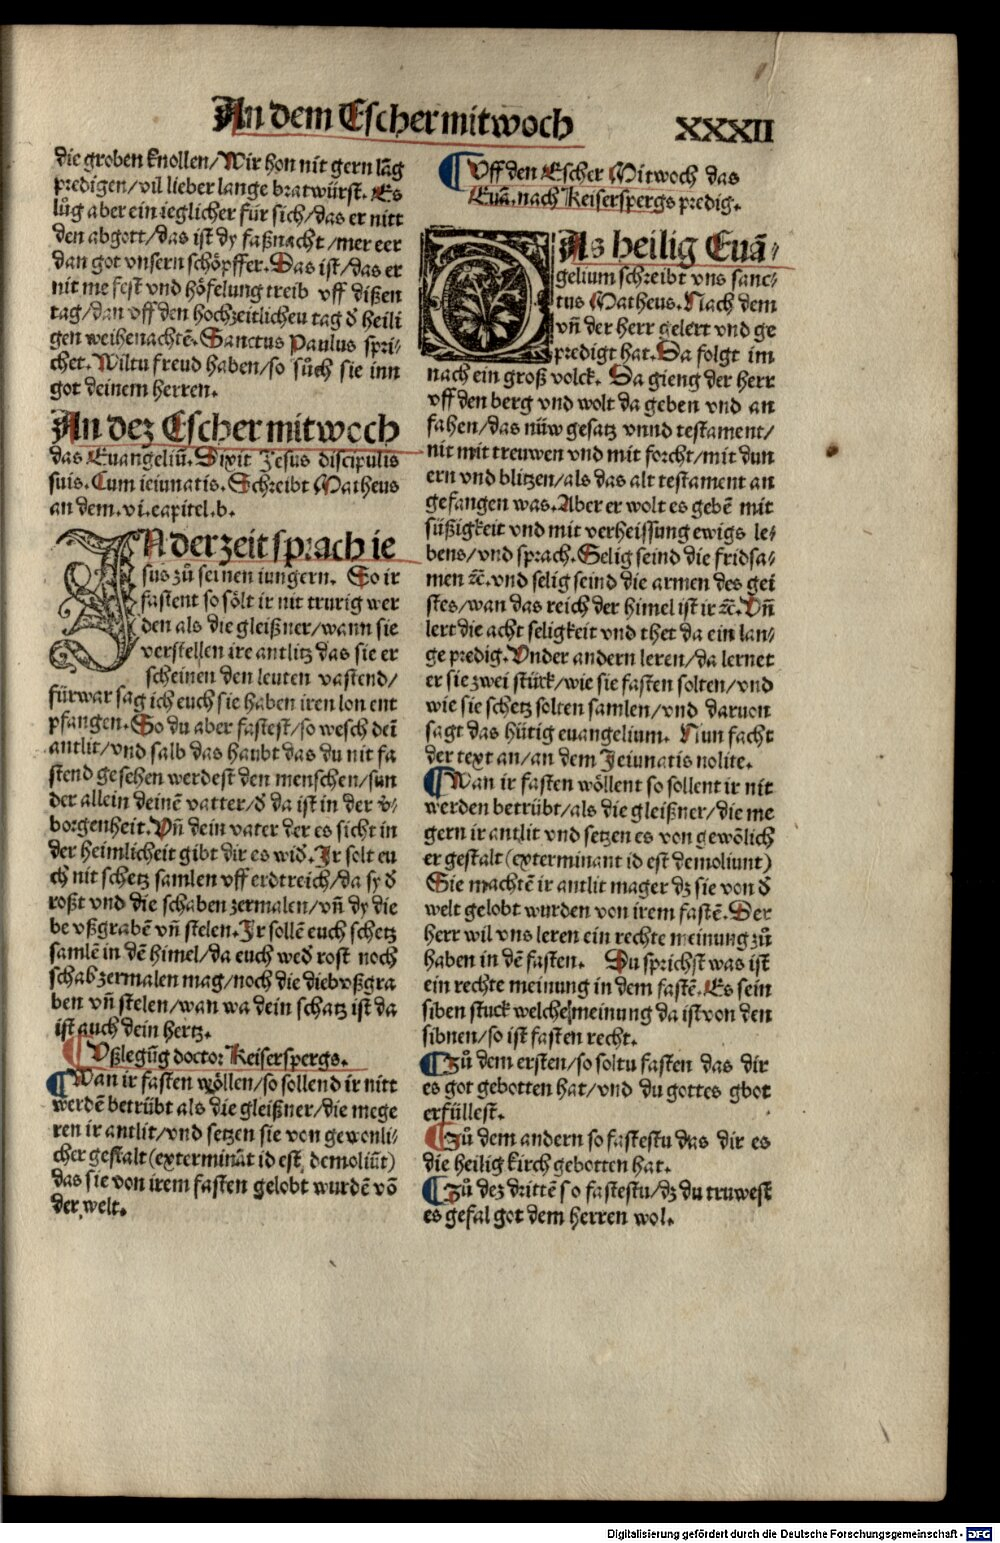 An dem Eschermitwoch
XXXII
die groben knollen/Wir hon nit gern lãg
predigen/vil lieber lange bratwürst. Es
lůg aber ein ieglicher für sich/das er nitt
den abgott/das ist dy faßnacht/mer eer
dan got vnsern schöpffer. Das ist/das er
nit me fest vnd höfelung treib vff dißen
tag/dan vff den hochzeitlicheu tag ď heili
gen weihenachtẽ. Sanctus Paulus spri-
chet. Wiltu freud haben/so sůch sie inn
got deinem herren.
An dez Eschermitwoch
das Euangeliũ. Dixit Jesus discipulis
suis. Cum ieiunatis. Schreibt Matheus
an dem.vi.capitel.b.
IN der zeit sprach ie
sus zů seinen iungern. So ir
fastent so sölt ir nit trurig wer
den als die gleißner/wann sie
verstellen ire antlitz das sie er
scheinen den leuten vastend/
fürwar sag ich euch sie haben iren lon ent
pfangen. So du aber fastest/so wesch deĩ
antlit/vnd salb das haubt das du nit fa
stend gesehen werdest den menschen/sun
der allein deinẽ vatter/ď da ist in der v-
borgenheit. Vñ dein vater der es sicht in
der heimlicheit gibt dir es wiď. Ir solt eu
ch nit schetz samlen vff erdtreich/da sy ď
roßt vnd die schaben zermalen/vñ dy die
be vßgrabẽ vñ stelen. Ir sollẽ euch schetz
samlẽ in dẽ himel/da euch weď rost noch
schab zermalen mag/noch die dieb vßgra
ben vñ stelen/wan wa dein schatz ist da
ist auch dein hertz.
¶ Vßlegũg doctor Keiserspergs.
¶ Wan ir fasten wöllen/so sollend ir nitt
werdẽ betrübt als die gleißner/die mege
ren ir antlit/vnd setzen sie von gewonli-
cher gestalt (exterminãt id est demoliũt)
das sie von irem fasten gelobt wurdẽ võ
der welt.
¶ Vff den Escher Mitwoch das
Euã. nach Keiserspergs predig.
DAs heilig Euã-
gelium schreibt vns sanc-
tus Matheus. Nach dem
vñ der herr gelert vnd ge
predigt hat. Da folgt im
nach ein groß volck. Da gieng der herr
vff den berg vnd wolt da geben vnd an
fahen/das nüw gesatz vnnd testament/
nit mit treuwen vnd mit forcht/mit dun
ern vnd blitzen/als das alt testament an
gefangen was. Aber er wolt es gebẽ mit
süßigkeit vnd mit verheissung ewigs le-
bens/vnd sprach. Selig seind die fridsa-
men ꝛc̃. vnd selig seind die armen des gei
stes/wan das reich der himel ist ir ꝛc̃. Vñ
lert die acht seligkeit vnd thet da ein lan-
ge predig. Vnder andern leren/da lernet
er sie zwei stück/wie sie fasten solten/vnd
wie sie schetz solten samlen/vnd daruon
sagt das hütig euangelium. Nun facht
der text an/an dem Jeiunatis nolite.
¶ Wan ir fasten wöllent so sollent ir nit
werden betrübt/als die gleißner/die me
gern ir antlit vnd setzen es von gewõlich
er gestalt (exterminant id est demoliunt)
Sie machtẽ ir antlit mager dz sie von ď
welt gelobt wurden von irem fastẽ. Der
herr wil vns leren ein rechte meinung zů
haben in dẽ fasten. Du sprichst was ist
ein rechte meinung in dem fastẽ. Es sein
siben stuck welche meinung da ist von den
sibnen/so ist fasten recht.
¶ Zů dem ersten/so soltu fasten das dir
es got gebotten hat/vnd du gottes gbot
erfüllest.
¶ Zů dem andern so fastestu das dir es
die heilig kirch gebotten hat.
¶ Zů dez drittẽ so fastestu/dz du truwest
es gefal got dem herren wol.
Digitalisierung gefördert durch die Deutsche Forschungsgemeinschaft - DFG